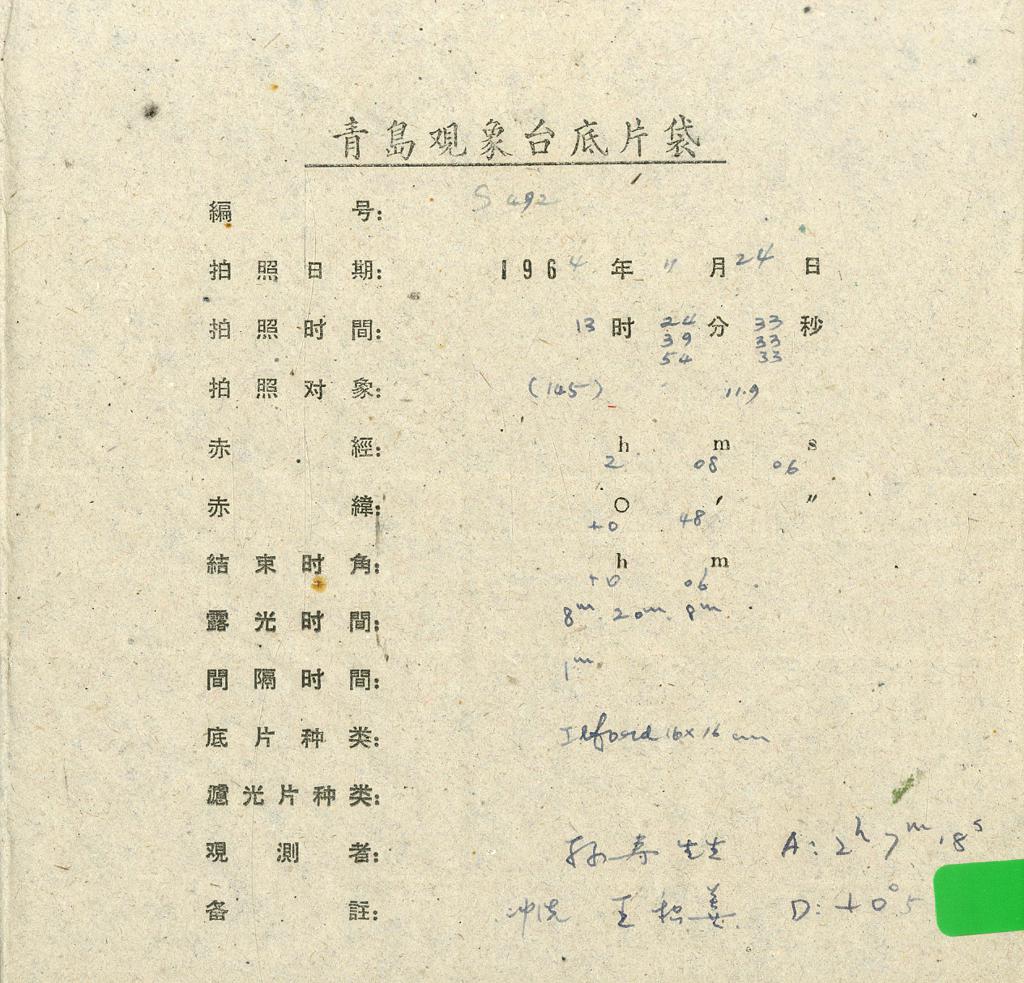 青島观象台底片袋
編号: S 492
拍照日期: 1964年11月24日
拍照时間: 13时24分33秒
39 33
54 33
拍照对象: (145) 11.9
赤經: h m s
2 08 06
赤緯: ○ ′ ″
+0 48
結束时角: h m
+0 06
露光时間: 8m. 20m. 8m.
間隔时間: 1m.
底片种类: Ilford 16×16 cm
濾光片种类:
观測者: 寿 A: 2h 7m.8s
备註: 冲洗 王 D: +0° 5